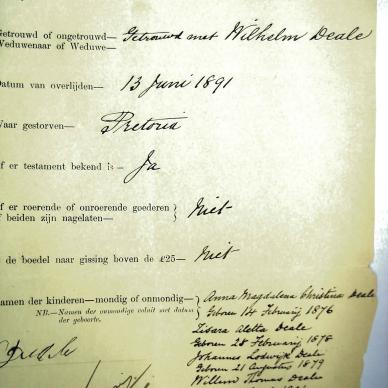 Getrouwd of ongetrouwd— Getrouwd met Wilhelm Deale
Weduwenaar of Weduwe—
Datum van overlijden— 13 Juni 1891
Waar gestorven— Pretoria
Of er testament bekend is— Ja
Of er roerende of onroerende goederen } Niet
of beiden zijn nagelaten—
de boedel naar gissing boven de £25— Niet
Namen der kinderen—mondig of onmondig— Anna Magdalena Christina Deale
NB.—Namen der onmondige voluit met datum der geboorte.
Geboren 14 Februarij 1876
Aletta Deale
Geboren 28 Februarij 1878
Johannes Lodwijk Deale
Geboren 21 Augustus 1879
Willem Thomas Deale